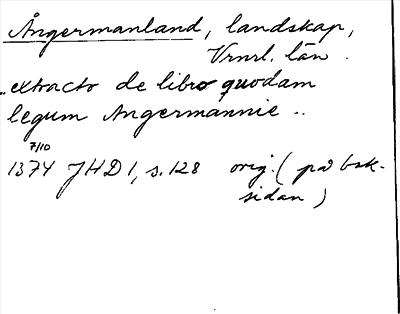 Ångermanland, landskap,
Vrnrl. län.
"extracto de libro quodam
legum Angermannie"
7/10
1374 JHD 1, s. 128 orig. (på bak-
sidan)